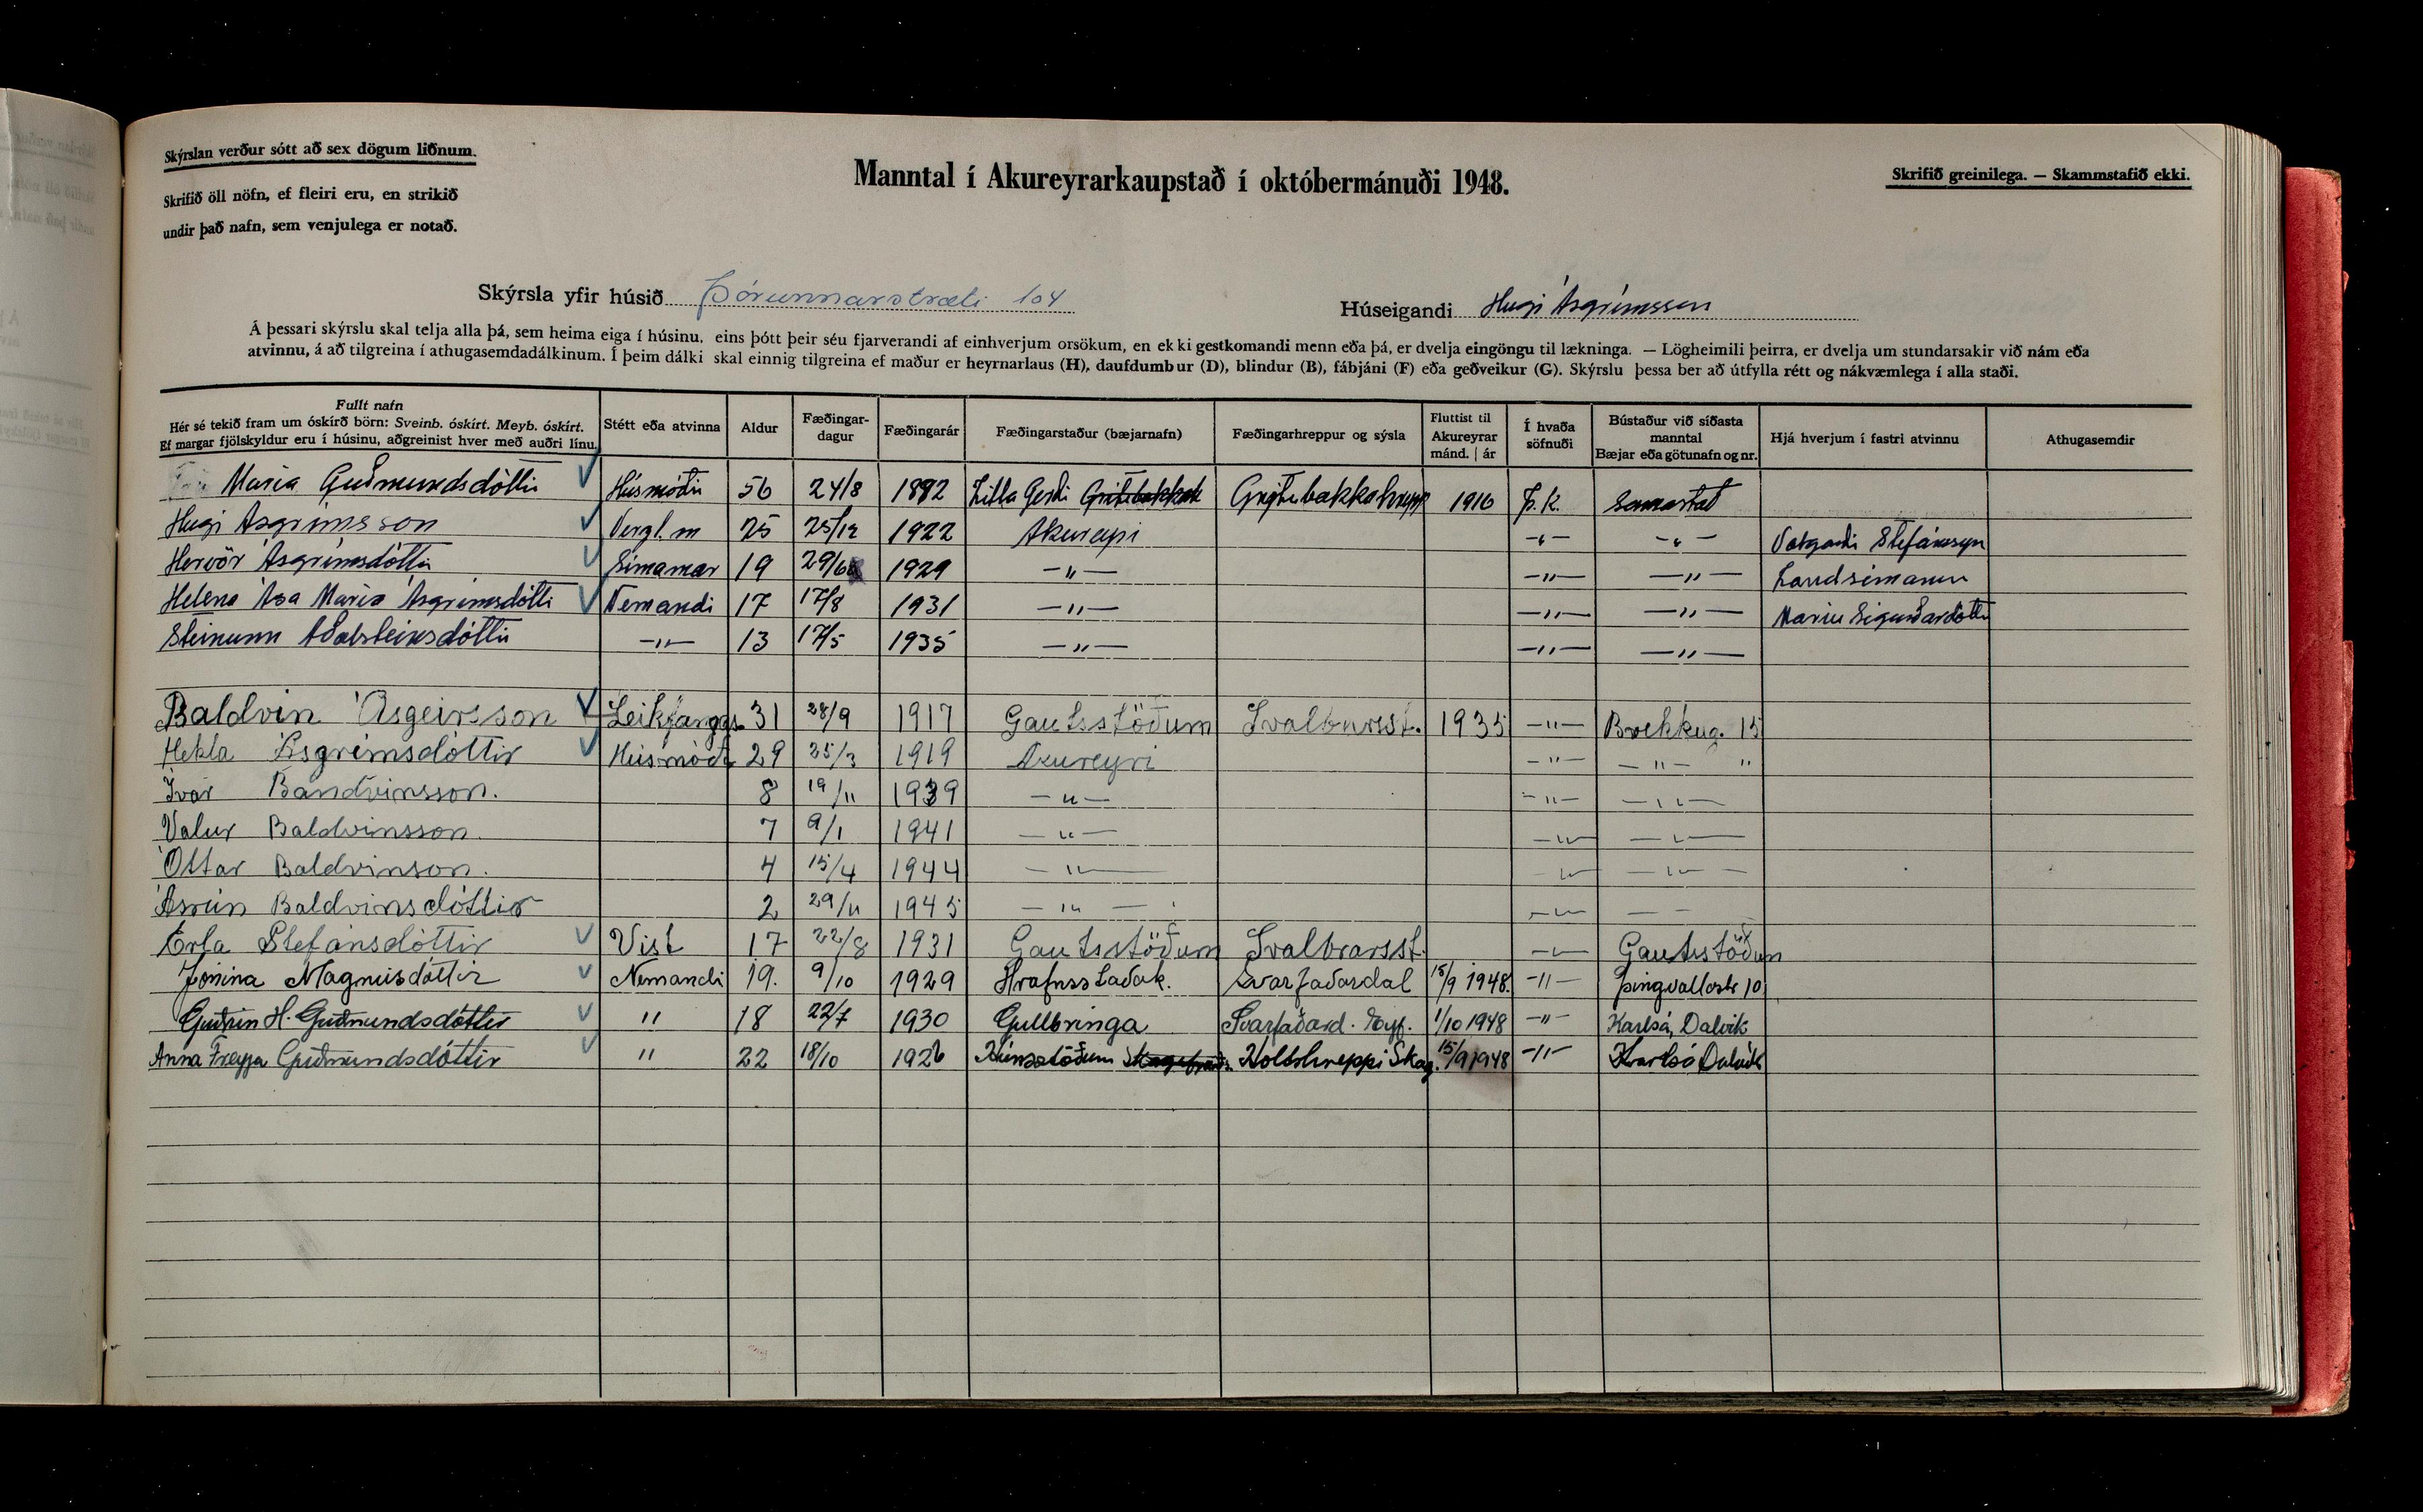 Skýrslan verður sótt að sex dögum liðnum.
Skrifið öll nöfn, ef fleiri eru, en strikið
undir það nafn, sem venjulega er notað.
Manntal í Akureyrarkaupstað í októbermánuði 1948.
Skrifið greinilega. — Skammstafið ekki.
Skýrsla yfir húsið Þórunnarstræti 104
Húseigandi Hugi Ásgrímsson
Á þessari skýrslu skal telja alla þá, sem heima eiga í húsinu, eins þótt þeir séu fjarverandi af einhverjum orsökum, en ekki gestkomandi menn eða þá, er dvelja eingöngu til lækninga. — Lögheimili þeirra, er dvelja um stundarsakir við nám eða
atvinnu, á að tilgreina í athugasemdadálkinum. Í þeim dálki skal einnig tilgreina ef maður er heyrnarlaus (H), daufdumbur (D), blindur (B), fábjáni (F) eða geðveikur (G). Skýrslu þessa ber að útfylla rétt og nákvæmlega í alla staði.
Fullt nafn
Hér sé tekið fram um óskírð börn: Sveinb. óskírt. Meyb. óskírt.
Ef margar fjölskyldur eru í húsinu, aðgreinist hver með auðri línu.
Stétt eða atvinna
Aldur
Fæðingar-
dagur
Fæðingarár
Fæðingarstaður (bæjarnafn)
Fæðingarhreppur og sýsla
Fluttist til
Akureyrar
mánd. | ár
Í hvaða
söfnuði
Bústaður við síðasta
manntal
Bæjar eða götunafn og nr.
Hjá hverjum í fastri atvinnu
Athugasemdir
María Guðmundsdóttir Húsmóðir 56 24/8 1892 Litla Gerði Grýtubakkah Grýtubakkahrepp 1916 Þ.k. Samastað
Hugi Ásgrímsson Verzl.m 25 25/12 1922 Akureyri -"- -"- Valgarði Stefánssyni
Hervör Ásgrímsdóttir Símamær 19 29/6 1929 -"- -"- -"- Landsímanum
Helena Ása María Ásgrímsdótti Nemandi 17 17/8 1931 -"- -"- -"- Maríu Sigurðardóttir
Steinunn Aðalsteinsdóttir -"- 13 17/5 1935 -"- -"- -"-
Baldvin Ásgeirsson Leikfangs. 31 28/9 1917 Gautsstöðum Svalbarst. 1935 -"- Brekkug. 15
Hekla Ásgrímsdóttir Húsmóðir 29 25/3 1919 Akureyri -"- -"- "
Ívar Bandvinsson. 8 19/11 1939 -"- -"- -"-
Valur Baldvinsson. 7 9/1 1941 -"- -"- -"-
Óttar Baldvinson. 4 15/4 1944 -"- -"- -"-
Ásrún Baldvinsdóttir 2 29/11 1945 -"- -"- - -
Erla Stefánsdóttir Vist 17 22/8 1931 Gautsstöðum Svalbrarsst. -"- Gautsstöðum
Jónína Magnúsdóttir Nemandi 19. 9/10 1929 Hrafnsstaðak. Svarfaðardal 15/9 1948. -"- Þingvallastr 10
Guðrún H. Guðmundsdóttir " 18 22/7 1930 Gullbringa Svarfaðard. Eyf. 1/10 1948 -"- Karlsá, Dalvík
Anna Freyja Guðmundsdóttir " 22 18/10 1926 Holtshreppi Skag. 15/9 1948 -"- Karlsá Dalvík